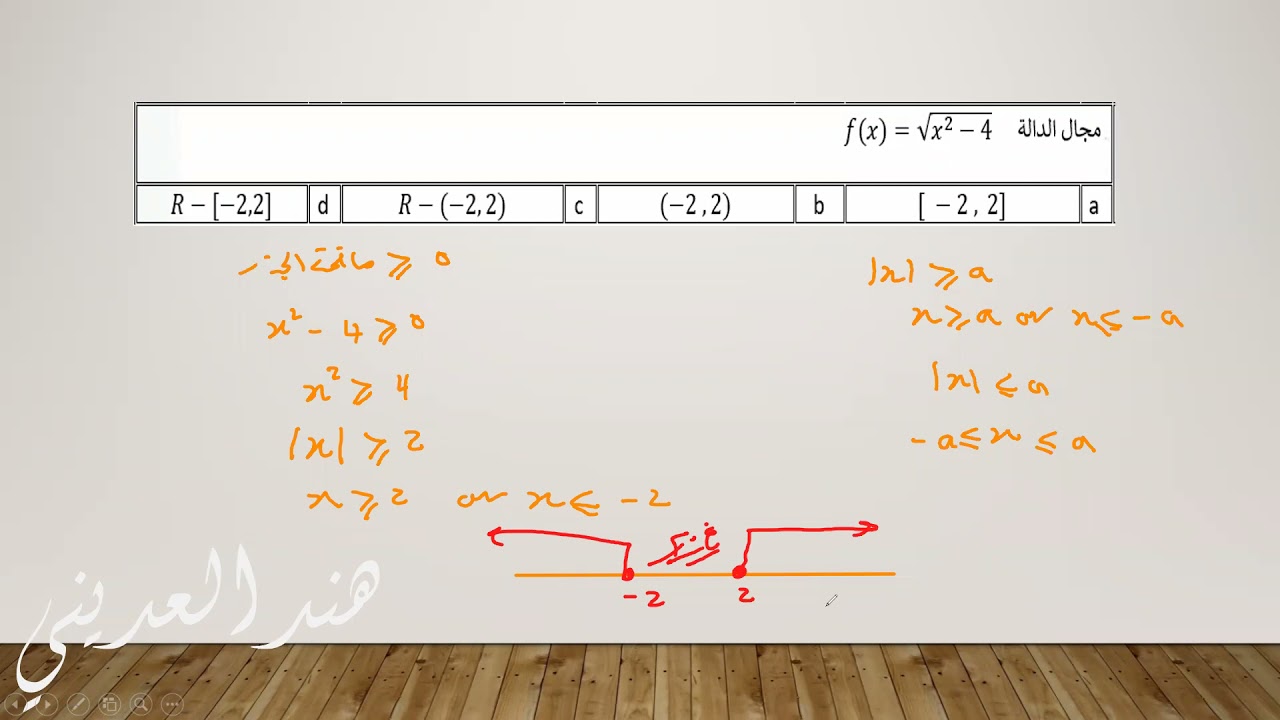 مجال الدالة f(x) = √(x² − 4)
a [ −2 , 2] b (−2 ,2) c R − (−2, 2) d R − [−2,2]
⩾ 0
x² − 4 ⩾ 0
x² ⩾ 4
|x| ⩾ 2
x ⩾ 2 or x ⩽ −2
|x| ⩾ a
x ⩾ a or x ⩽ −a
|x| ⩽ a
−a ⩽ x ⩽ a
−2 2
هند العديني